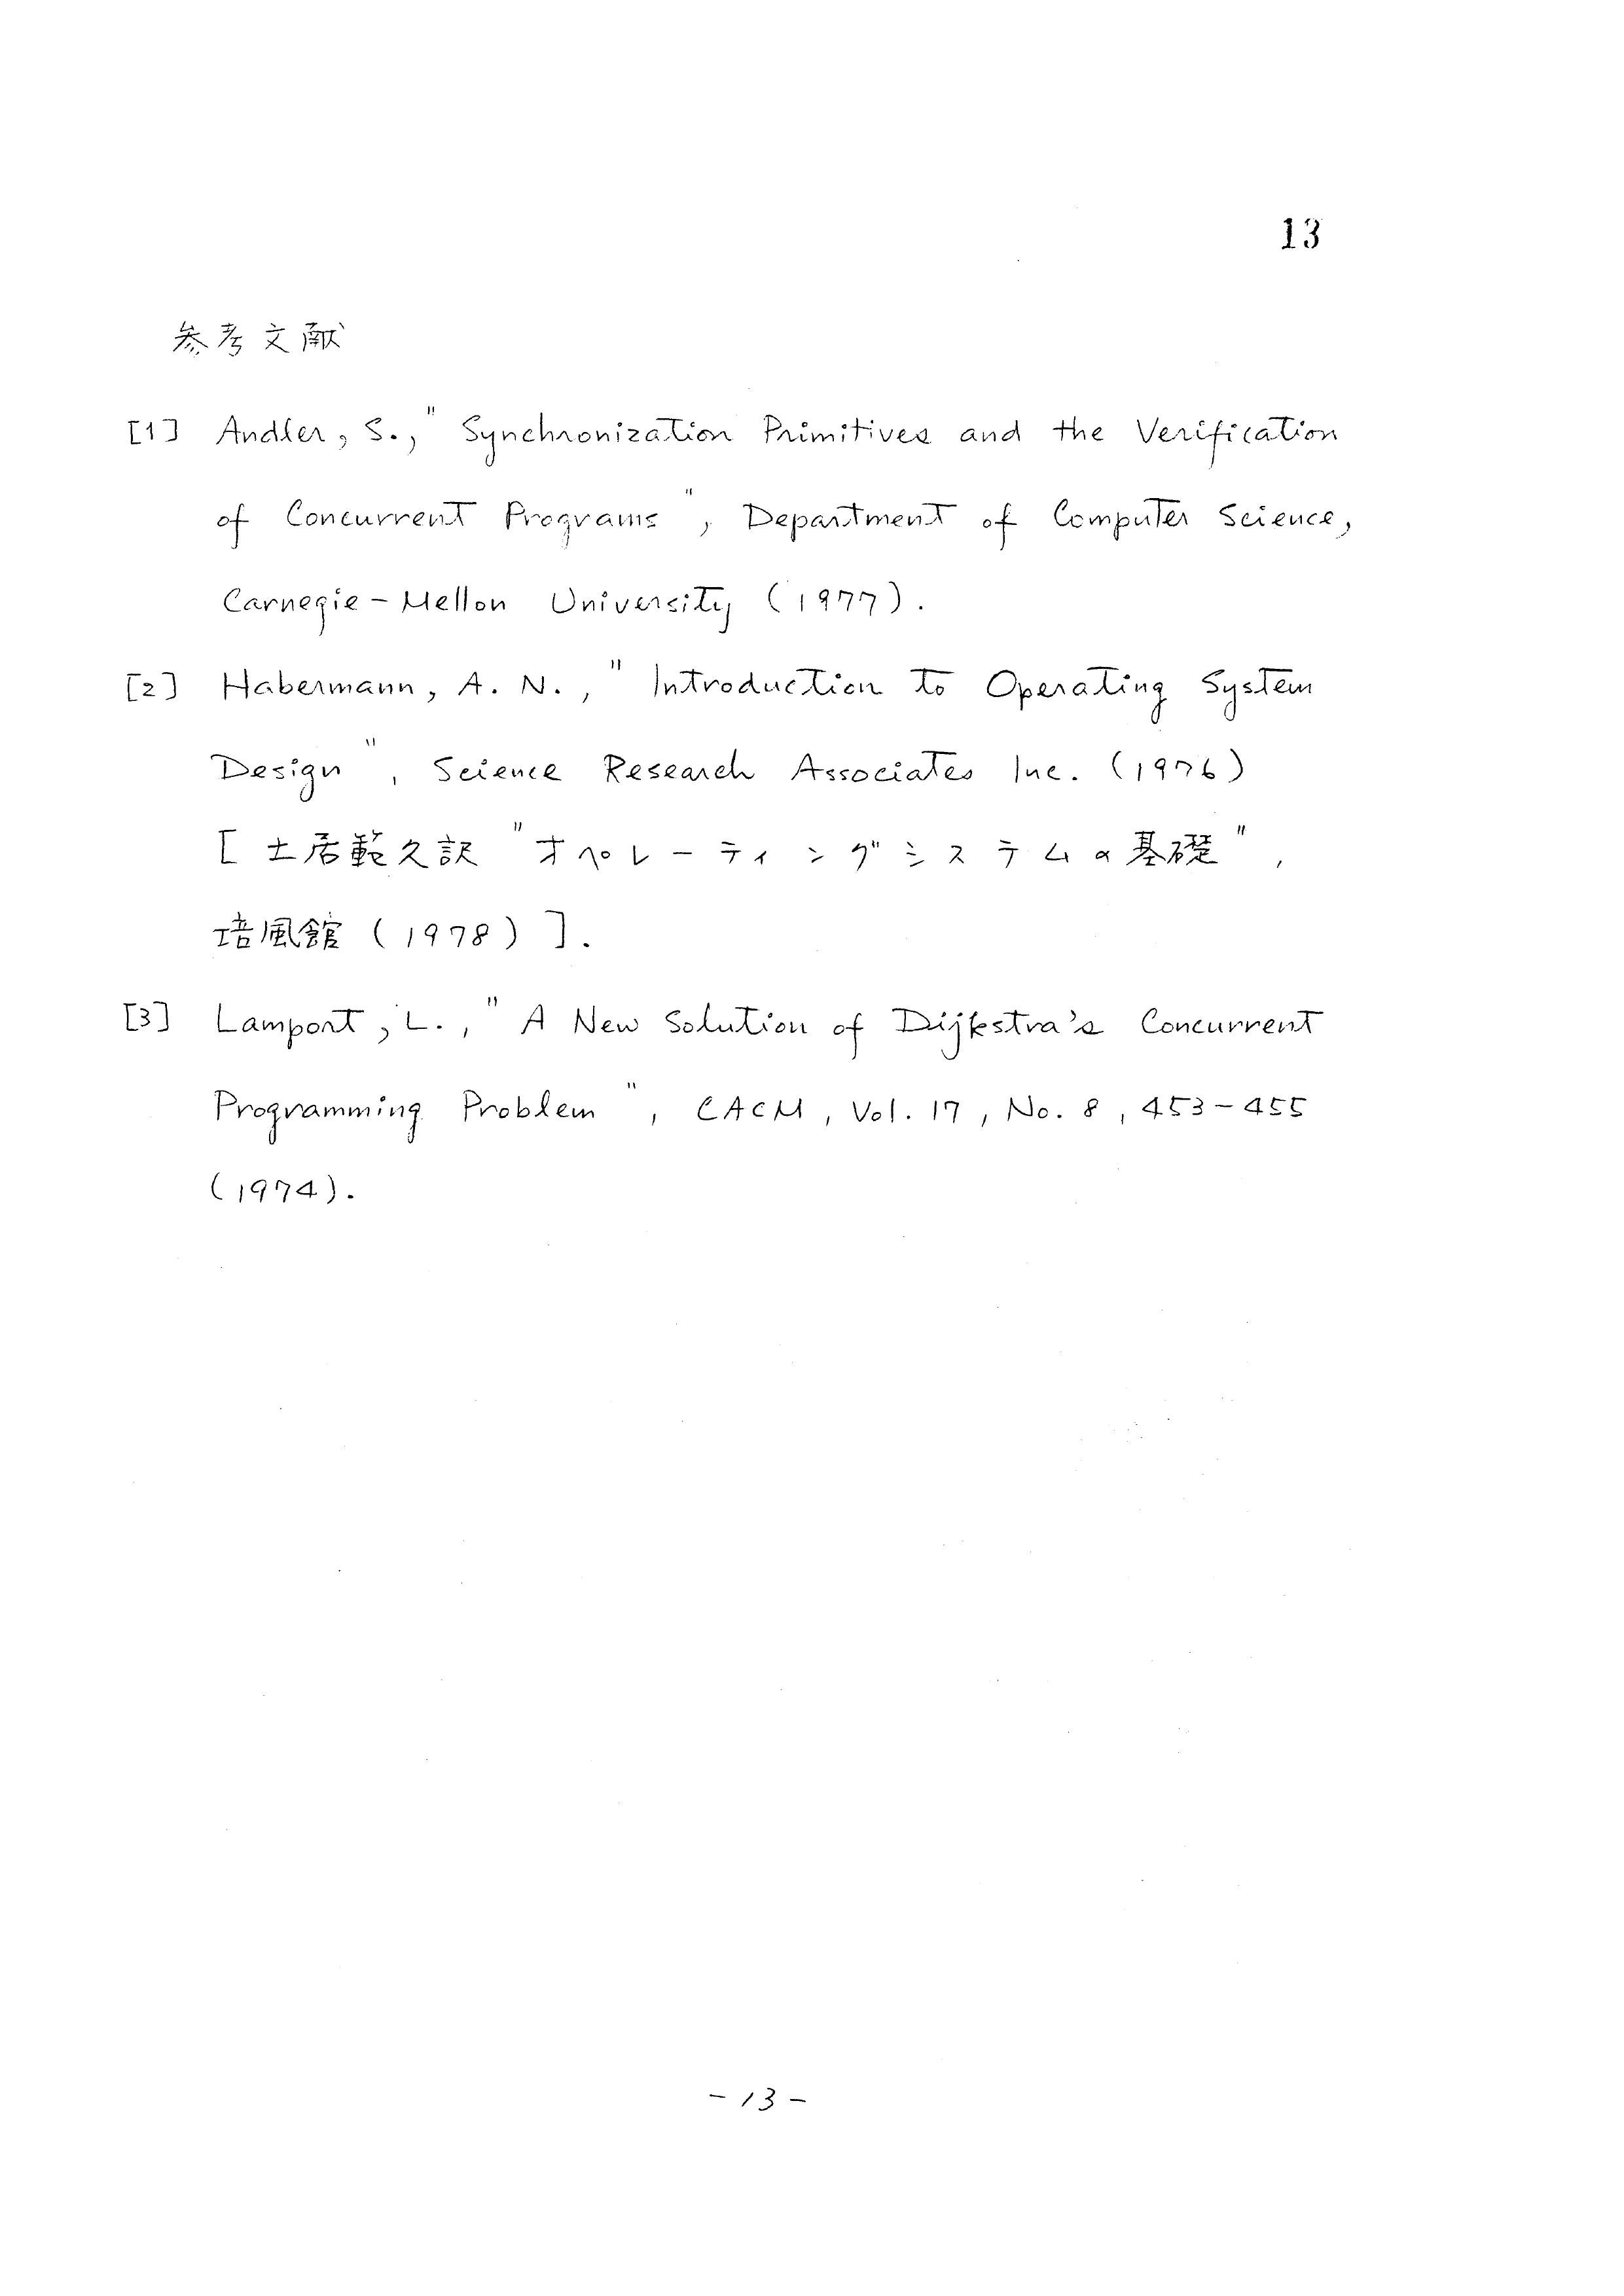 13
参考文献
[1] Andler, S., "Synchronization Primitives and the Verification
of Concurrent Programs", Department of Computer Science,
Carnegie-Mellon University (1977).
[2] Habermann, A. N., "Introduction to Operating System
Design", Science Research Associates Inc. (1976)
[土居範久訳 "オペレーティングシステムの基礎",
培風館 (1978)].
[3] Lamport, L., "A New Solution of Dijkstra's Concurrent
Programming Problem", CACM, Vol. 17, No. 8, 453-455
(1974).
-13-